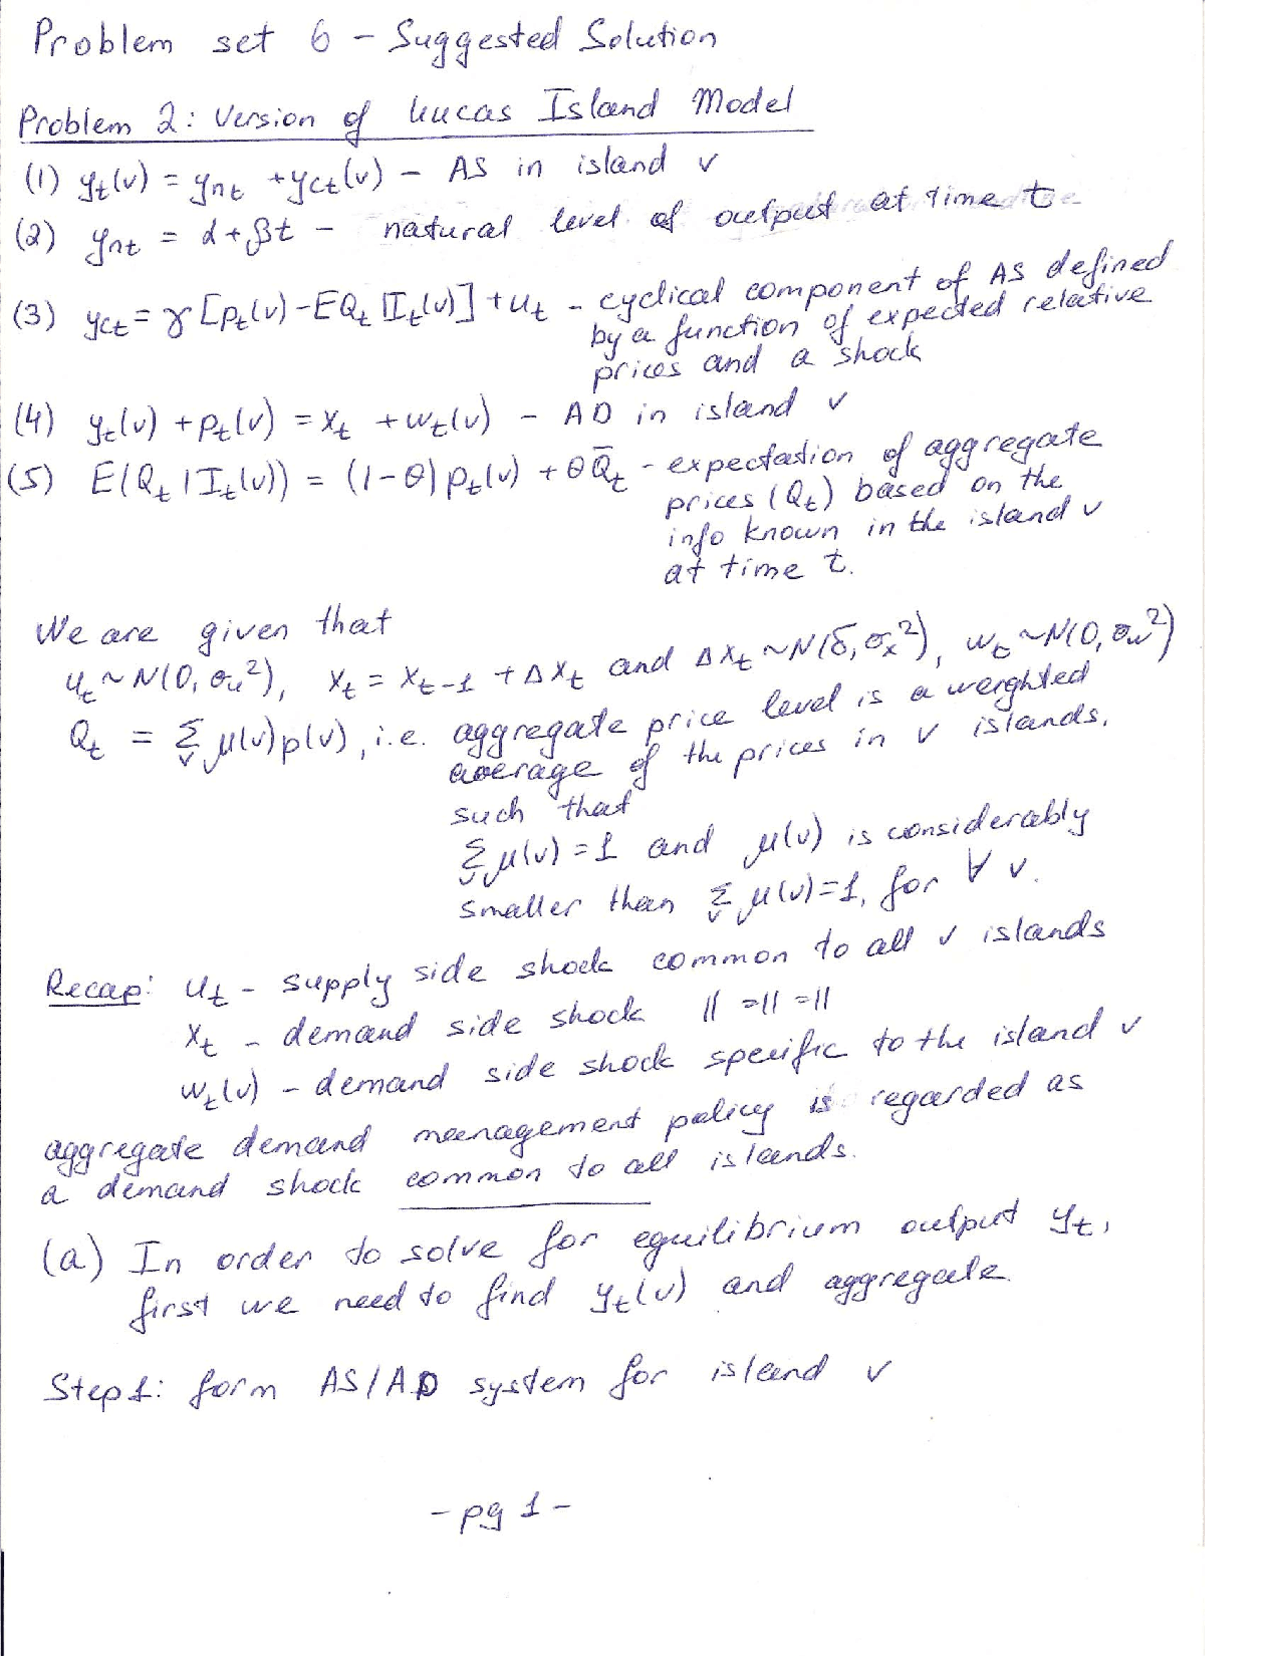 Problem set 6 - Suggested Solution
Problem 2: Version of Lucas Island Model
(1) y_t(v) = y_nt + y_ct(v) - AS in island v
(2) y_nt = α + βt - natural level of output at time t
(3) y_ct = γ [p_t(v) - EQ_t | I_t(v)] + u_t - cyclical component of AS defined
by a function of expected relative
prices and a shock
(4) y_t(v) + p_t(v) = x_t + w_t(v) - AD in island v
(5) E(Q_t | I_t(v)) = (1-θ) p_t(v) + θ Q̄_t - expectation of aggregate
prices (Q_t) based on the
info known in the island v
at time t.
We are given that
u_t ~ N(0, σ_u²), x_t = x_t-1 + Δx_t and Δx_t ~ N(δ, σ_x²), w_t ~ N(0, σ_w²)
Q_t = Σ_v μ(v)p(v), i.e. aggregate price level is a weighted
average of the prices in v islands,
such that
Σ_v μ(v) = 1 and μ(v) is considerably
smaller than Σ_v μ(v) = 1, for ∀ v.
Recap: u_t - supply side shock common to all v islands
x_t - demand side shock || =|| =||
w_t(v) - demand side shock specific to the island v
aggregate demand management policy is regarded as
a demand shock common to all islands.
(a) In order to solve for equilibrium output y_t,
first we need to find y_t(v) and aggregate.
Step 1: form AS/AD system for island v
- pg 1 -